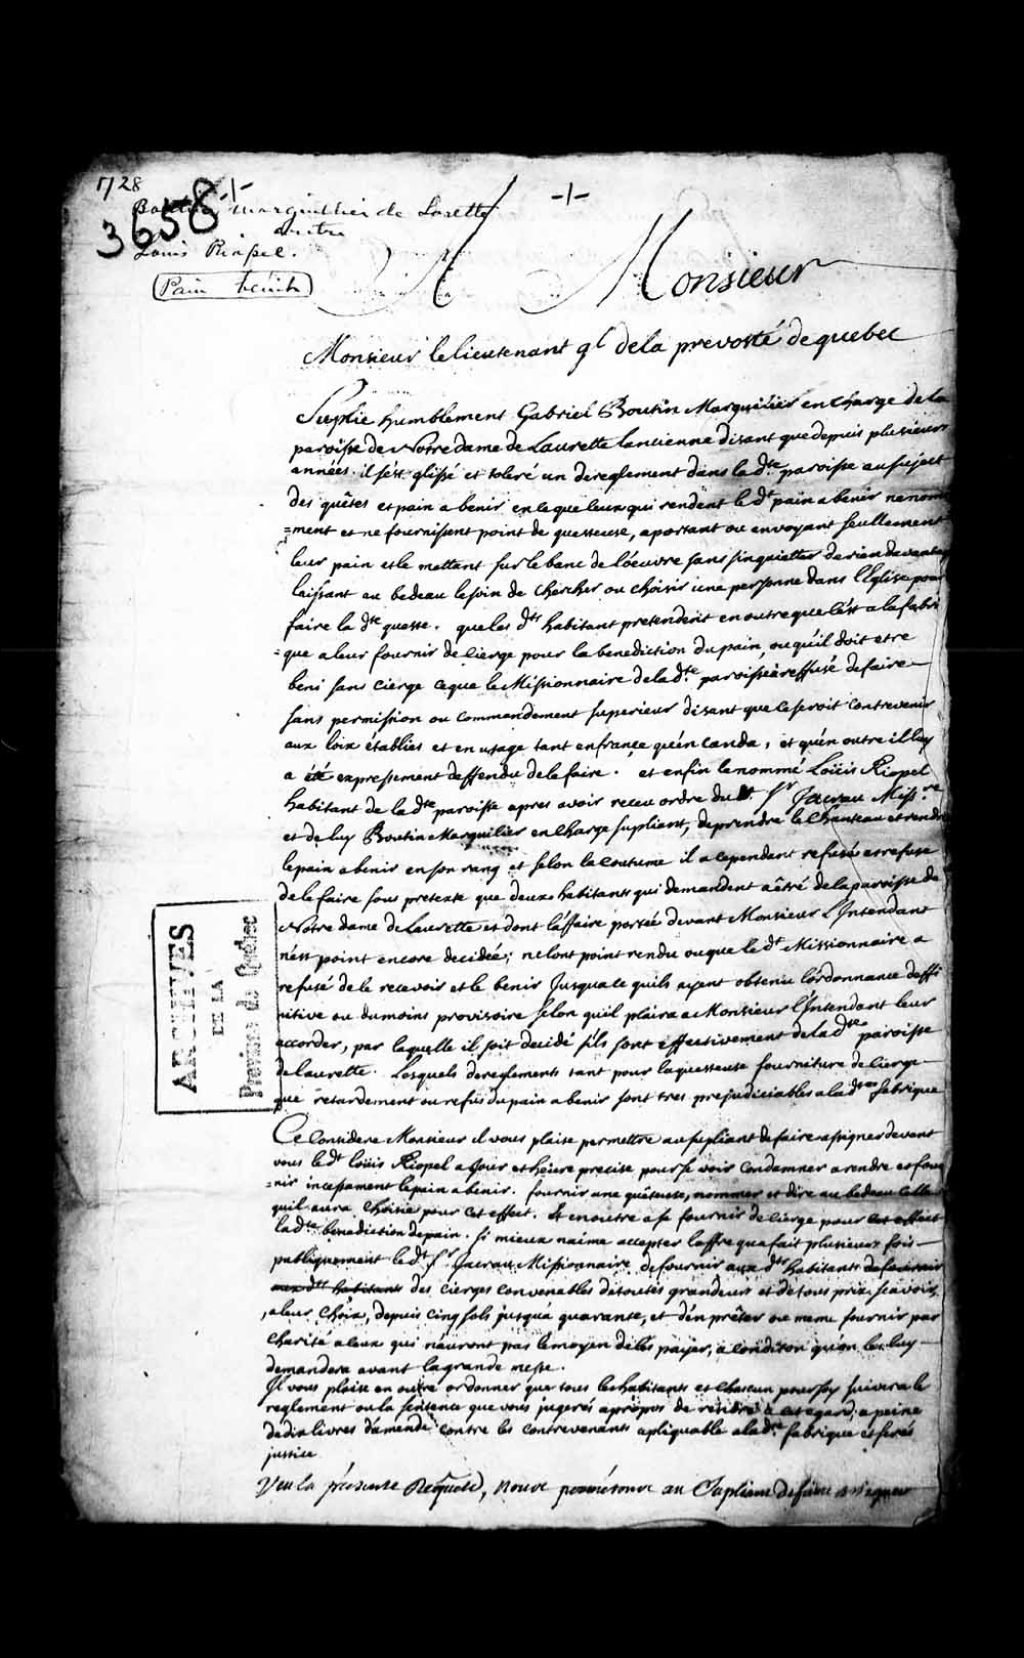 1728
Boutin marguillier de Lorette
contre
3658
Louis Riopel.
Pain bénit
A Monsieur
Monsieur le lieutenant gl de la prevosté de quebec
Suplie humblement Gabriel Boutin Marguilier en charge de la
paroisse de Notre dame de Laurette lancienne disant que depuis plusieurs
années il s'est glissé et toleré un dereglement dans la dte paroisse au sujet
des quêtes et pain a benir en ce que ceux qui rendent le dt pain a benir ne nom
=ment et ne fournissent point de questeuse, aportant ou envoyant seullement
leur pain et le mettant sur le banc de l'oeuvre sans s'inquietter de rien davantage
laissant au bedeau le soin de chercher ou choisir une personne dans l'Eglise pour
faire la dte queste. que les dts habitant pretendent en outre que c'est a la fabri
=que a leur fournir de cierge pour la benediction du pain, ou qu'il doit etre
beni sans cierge ce que le Missionnaire de la dte paroisse a reffusé de faire
sans permission ou commandement superieur disant que ce seroit contrevenir
aux loix établies et en usage tant en france qu'en canda, et qu'en outre il luy
a été expressement deffendu de le faire. et enfin le nommé Loüis Riopel
habitant de la dte paroisse apres avoir receu ordre du Sr Jacrau Missre
et de luy Boutin Marguilier en charge supliant, de prendre le chanteau et rendre
le pain a benir en son rang et selon la coutume il a cependant refusé et refuse
de le faire sous pretexte que deux habitants qui demandent a êtré de la paroisse de
Notre dame de Laurette et dont l'affaire portée devant Monsieur L'Intendant
n'est point encore decidée; ne l'ont point rendu ou que le dt Missionnaire a
refusé de le recevoir et le benir jusqu'a ce quils ayent obtenu l'ordonnance deffi
nitive ou du moins provisoire selon qu'il plaira a Monsieur l'Intendant leur
accorder, par laquelle il soit decidé s'ils sont effectivement de la dte paroisse
de laurette. Lesquels dereglements tant pour la questeuse fourniture de cierge
que retardement ou refus du pain a benir sont tres prejudiciables a la dte fabrique
Ce Considere Monsieur il vous plaise permettre au supliant de faire assigner devant
vous le dt loüis Riopel a jour et heure precise pour se voir condamner a rendre et four
=nir incessament le pain a benir. fournir une quêteuse, nommer et dire au bedeau celle
quil aura choisie pour cet effect. Et en outre a se fournir de cierge pour cet effect
la dte benediction de pain. si mieux n'aime accepter l'offre qu'a fait plusieurs fois
publiquement le dt Sr Jacrau Missionnaire de fournir aux dts habitants de fournir
aux dts habitants des cierges convenables de toutes grandeurs et de tous prix, scavoir,
a leur choix, depuis cinq sols jusqu'a quarante, et d'en prêter ou meme fournir par
charité a ceux qui n'auront pas le moyen de les payer, a condition qu'on les luy
demandera avant la grande messe.
Il vous plaise en outre ordonner que tous les habitants et chacun pour soy suivera le
reglement ou la sentence que vous jugerés apropos de rendre a cet egard, a peine
de dix livres d'amende contre les contrevenants apliquable a la dte fabrique et ferés
justice
Veu la présente Requete, nous permétons au Supliant de faire assigner
ARCHIVES
DE LA
Province de Quebec